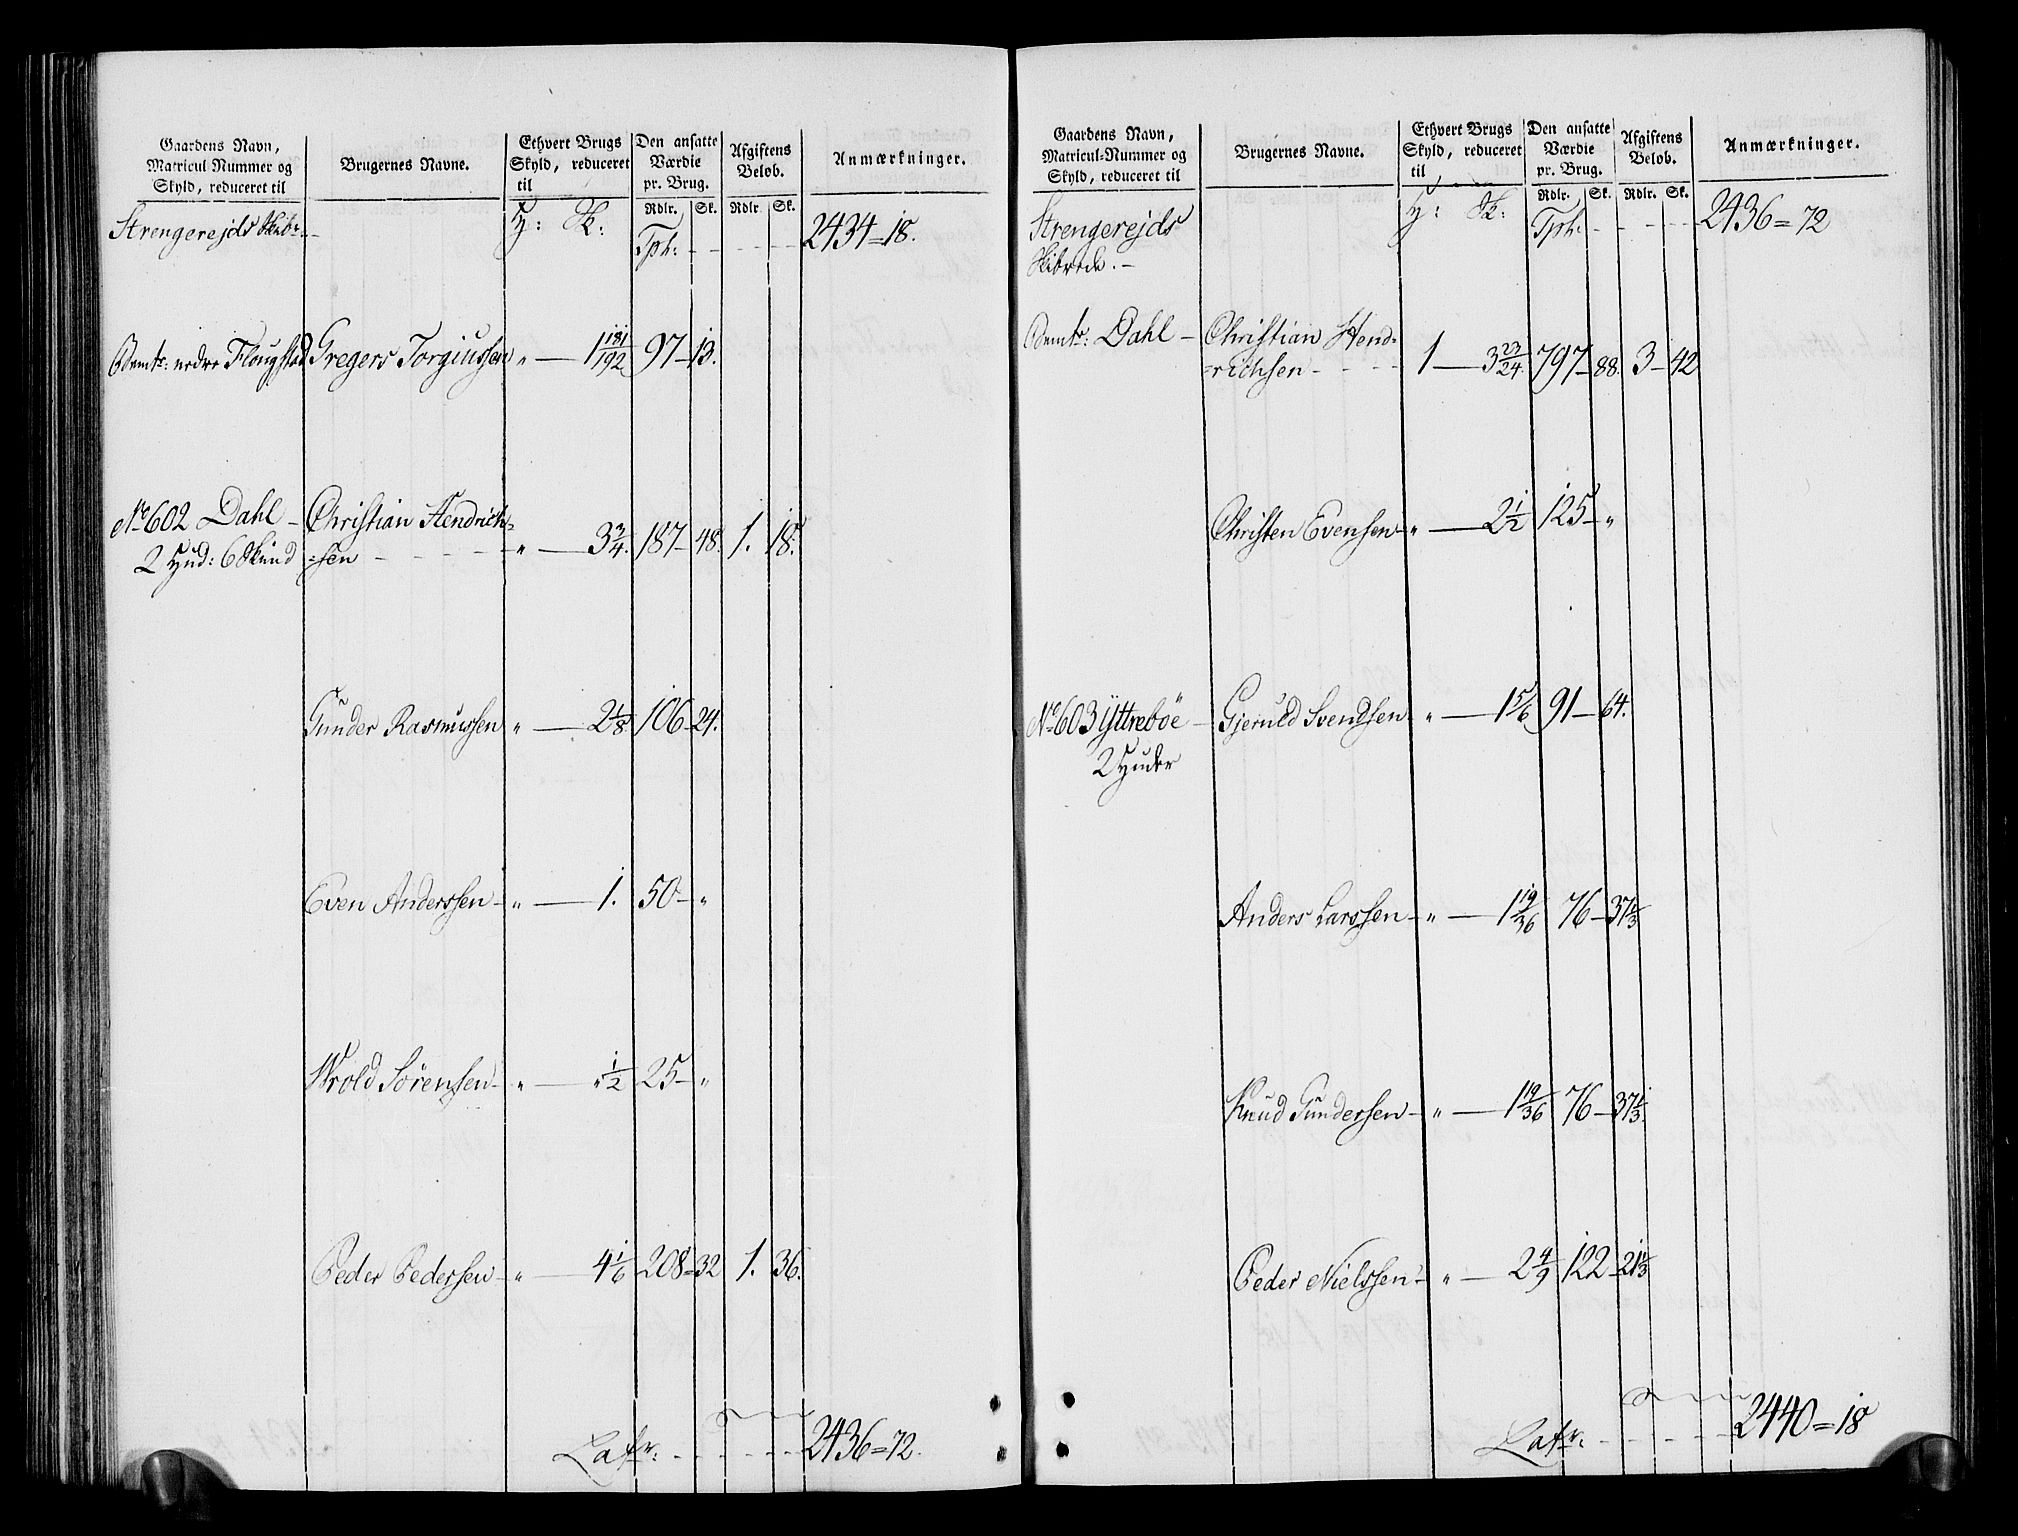 Gaardens Navn, Matricul Nummer og Skyld, reduceret til | Brugernes Navne. | Ethvert Brugs Skyld, reduceret til | Den ansatte Værdie pr. Brug. Rdlr. Sk. | Afgiftens Belob. Rdlr. Sk. | Anmærkninger.
Strengerejds Skibr: - H: Sk: Tph: - - - - - 2434=18.
Bemte: nedre Flougstad Gregers Torgiussen " — 1 181/192 97 — 13.
No 602 Dahl - Christian Hendrich=
2 Hud: 6 Skind =sen - - - - " — 3 3/4. 187 — 48. 1. 18.
Gunder Rasmussen " — 2 1/8. 106 — 24.
Even Anderssen - " — 1. 50 — "
Wrold Sörensen - " — " 1/2 25 — "
Peder Pedersen - " — 4 1/6 208 = 32 1. 36.
Latr: - - - - - 2436=72.
Gaardens Navn, Matricul-Nummer og Skyld, reduceret til | Brugernes Navne. | Ethvert Brugs Skyld, reduceret til | Den ansatte Værdie pr. Brug. Rdlr. Sk. | Afgiftens Belob. Rdlr. Sk. | Anmærkninger.
Strengerejds H: Sk: Tph: - - - - 2436=72
Skibrede. -
Bemte: Dahl - Christian Hend=
=richsen - - - - 1 — 3 23/24. 797 — 88. 3 — 42
Christen Evensen - " — 2 1/2 125 — "
No 603 Yttreböe - Gjeruld Svendsen " — 1 5/6 91 — 64.
2 Huder
Anders Larssen - " — 1 19/36 76 — 37 1/3
Knud Gundersen - " — 1 19/36 76 — 37 1/3.
Peder Nielssen - " — 2 4/9 122 — 21 1/3
Latr: - - - - - 2440=18